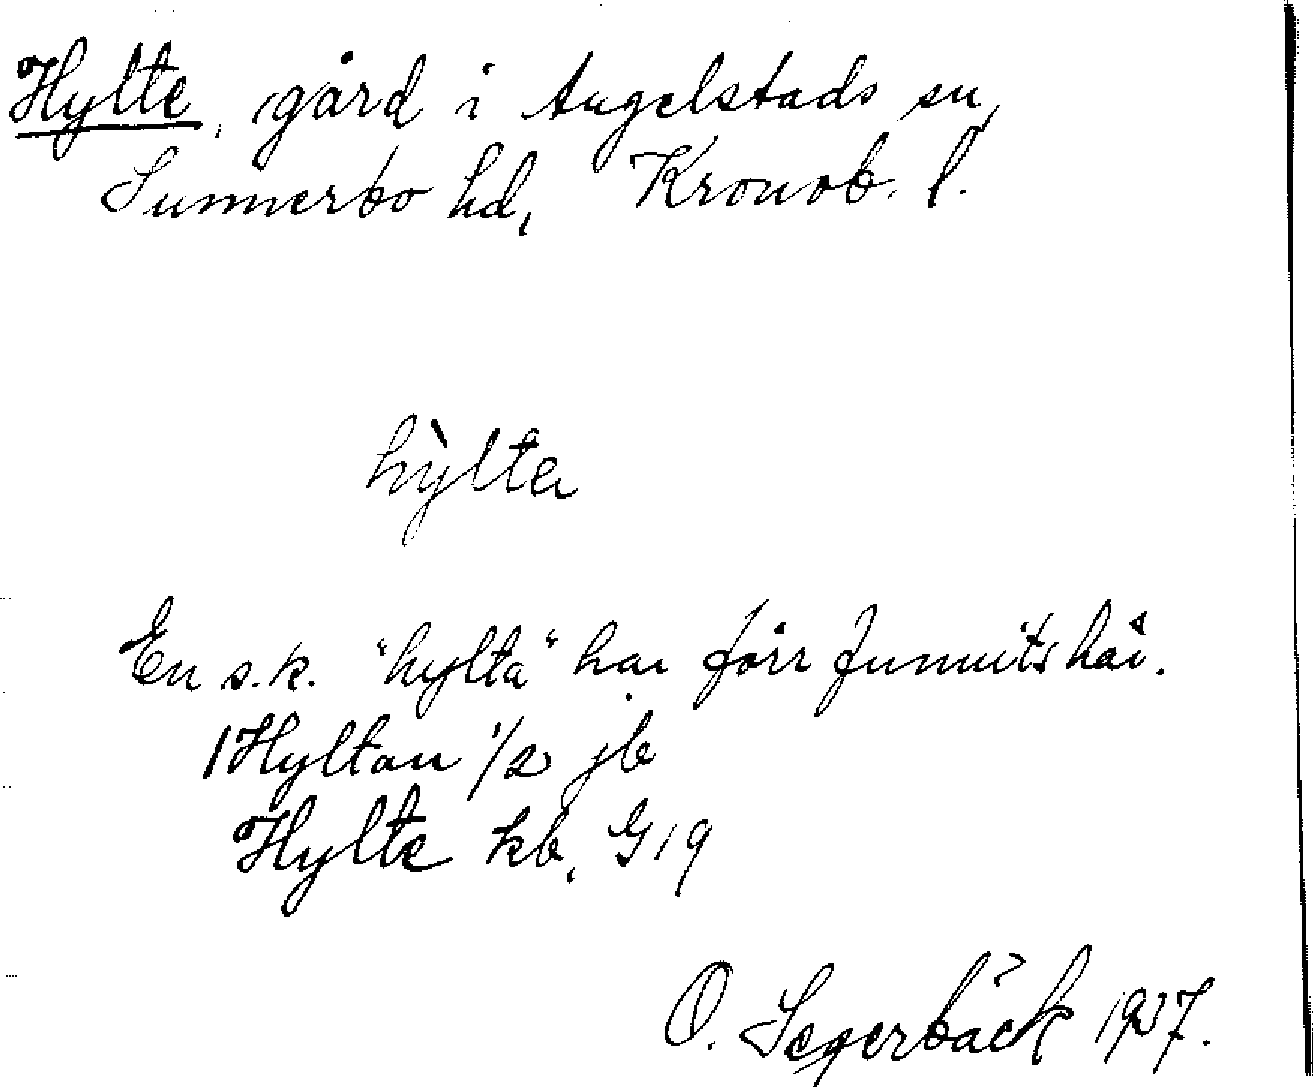 Hylte, gård i Angelstads sn,
Sunnerbo hd, Kronob. l.
hỳlta
En s.k. "hylta" har förr funnits här.
1 Hyltan 1/2 jb
Hylte kb, G19
O. Segerbäck 1937.